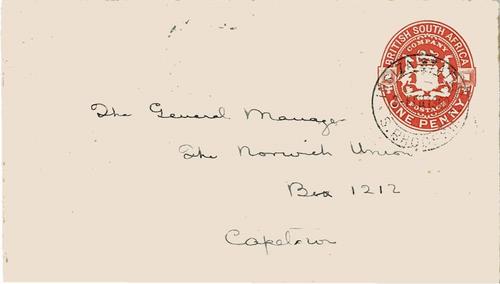 BRITISH SOUTH AFRICA
COMPANY
POSTAGE
ONE PENNY
The General Manager
The Norwich Union
Box 1212
Capetown